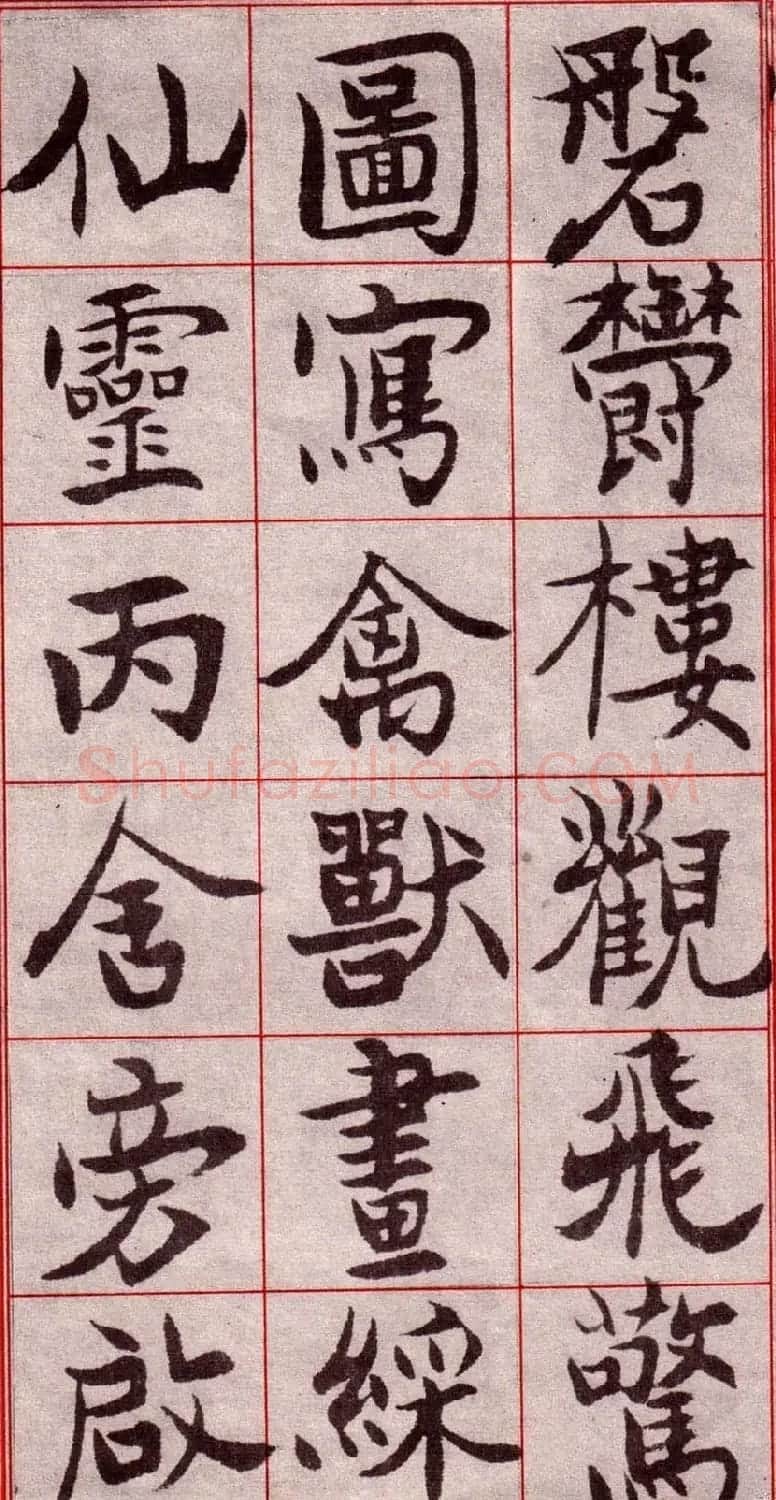 磐鬱樓觀飛驚
圖寫禽獸畫綵
仙靈丙舍旁啟
Shufaziliao.COM